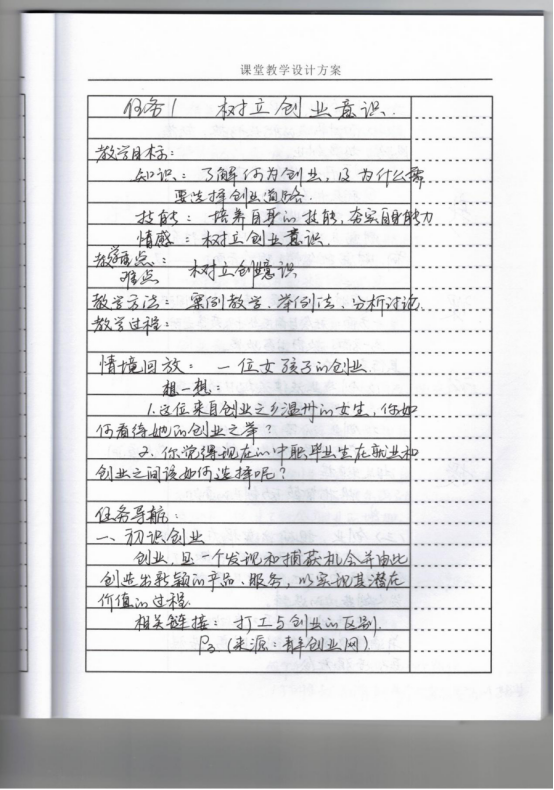 课堂教学设计方案
任务1 树立创业意识.
教学目标:
知识: 了解何为创业, 以及为什么需
要选择创业道路.
技能: 培养自身的技能, 夯实自身能力
情感: 树立创业意识.
教学重点:
难点 树立创业意识
教学方法: 案例教学, 举例法, 分析讨论.
教学过程:
情境回放: 一位女孩子的创业
想一想:
1.这位来自创业之乡温州的女生, 你如
何看待她的创业之举?
2、你觉得现在的中职毕业生在就业和
创业之间该如何选择呢?
任务导航:
一、初识创业
创业, 是一个发现和捕获机会并由此
创造出新颖的产品、服务, 以实现其潜在
价值的过程.
相关链接: 打工与创业的区别.
P3 (来源: 青年创业网).